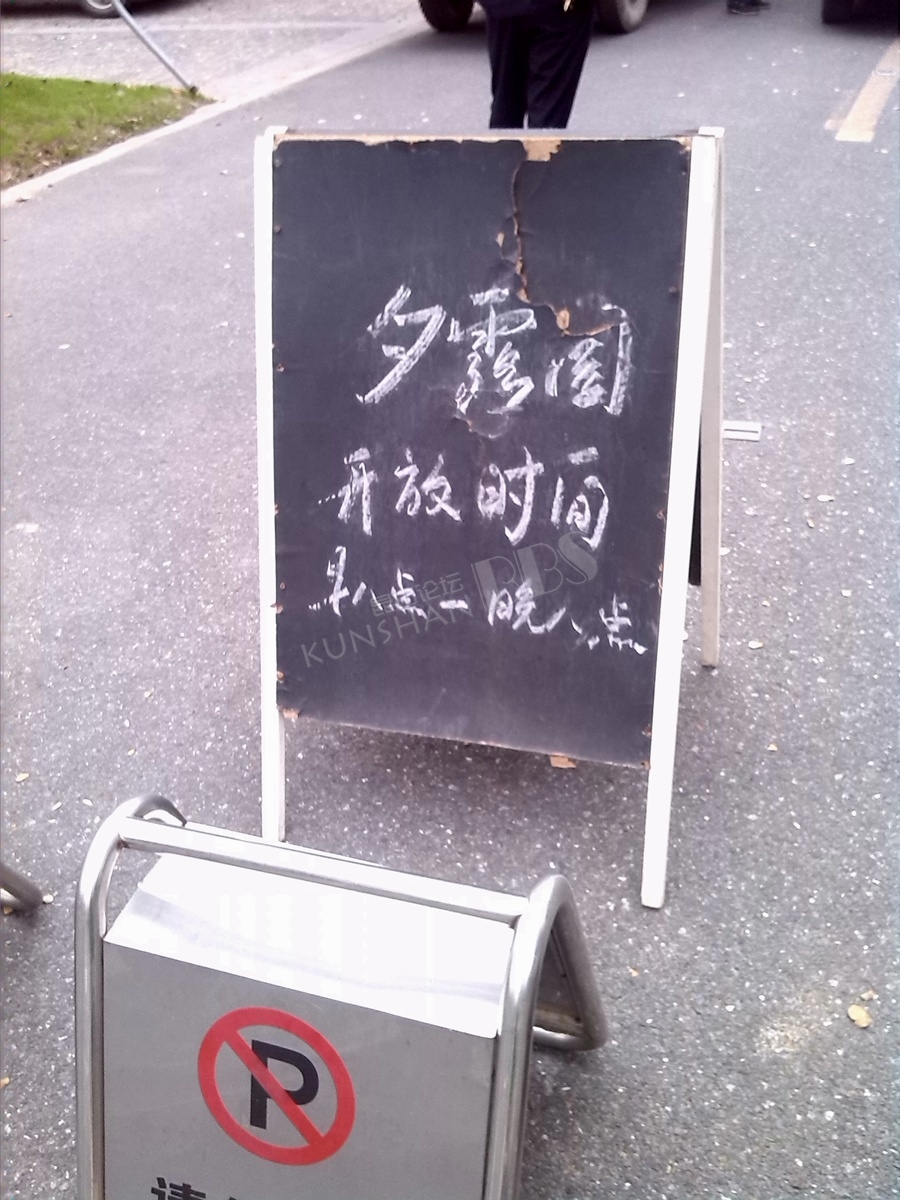 夕霞阁
开放时间
早八点一晚八点
昆山论坛 BBS
KUNSHAN
P
请